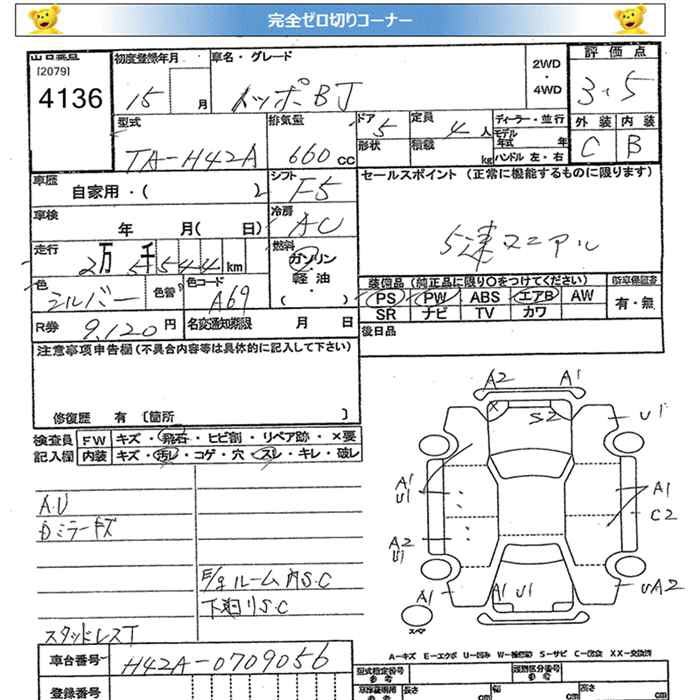 完全ゼロ切りコーナー
出品番号
[2079]
4136
初度登録年月
15 月
車名・グレード
トッポBJ
2WD
・
4WD
評価点
3.5
外装 内装
C B
型式
TA-H42A
排気量
660 cc
ドア 5
形状
定員 4 人
積載 kg
ディーラー・並行
モデル年式 年
ハンドル 左・右
車歴
自家用・( )
シフト
F5
セールスポイント (正常に機能するものに限ります)
5速マニアル
車検
年 月( 日)
冷房
AC
走行
2万5千544 km
燃料
ガソリン
軽油
( )
色
シルバー
色替
色コード
A69
装備品 (純正品に限り○をつけてください)
PS PW ABS エアB AW
SR ナビ TV カワ
新車保証書
有・無
R券 9,120 円
名変通知期限 月 日
後日品
注意事項申告欄(不具合内容等は具体的に記入して下さい)
修復歴 有 [箇所 ]
検査員
記入欄
FW キズ・飛石・ヒビ割・リペア跡・×要
内装 キズ・汚レ・コゲ・穴・スレ・キレ・破レ
A.U
Dミラーキズ
E/gルーム内S.C
下廻りS.C
スタッドレスT
A2 A1
X S2 U1
A1
U1
A1
C2
A2
U1
A1 A1 U1 UA2
スペア
A-キズ E-エクボ U-凹み W-補修跡 S-サビ C-腐食 XX-交換済
車台番号
H42A-0709056
登録番号
型式指定番号
参考
類別区分番号
参考
長さ cm
幅 cm
高さ cm